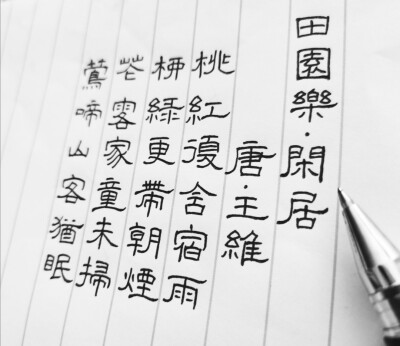 田園樂·閑居
唐·王維
桃紅復含宿雨
柳綠更帶朝煙
花落家童未掃
鶯啼山客猶眠